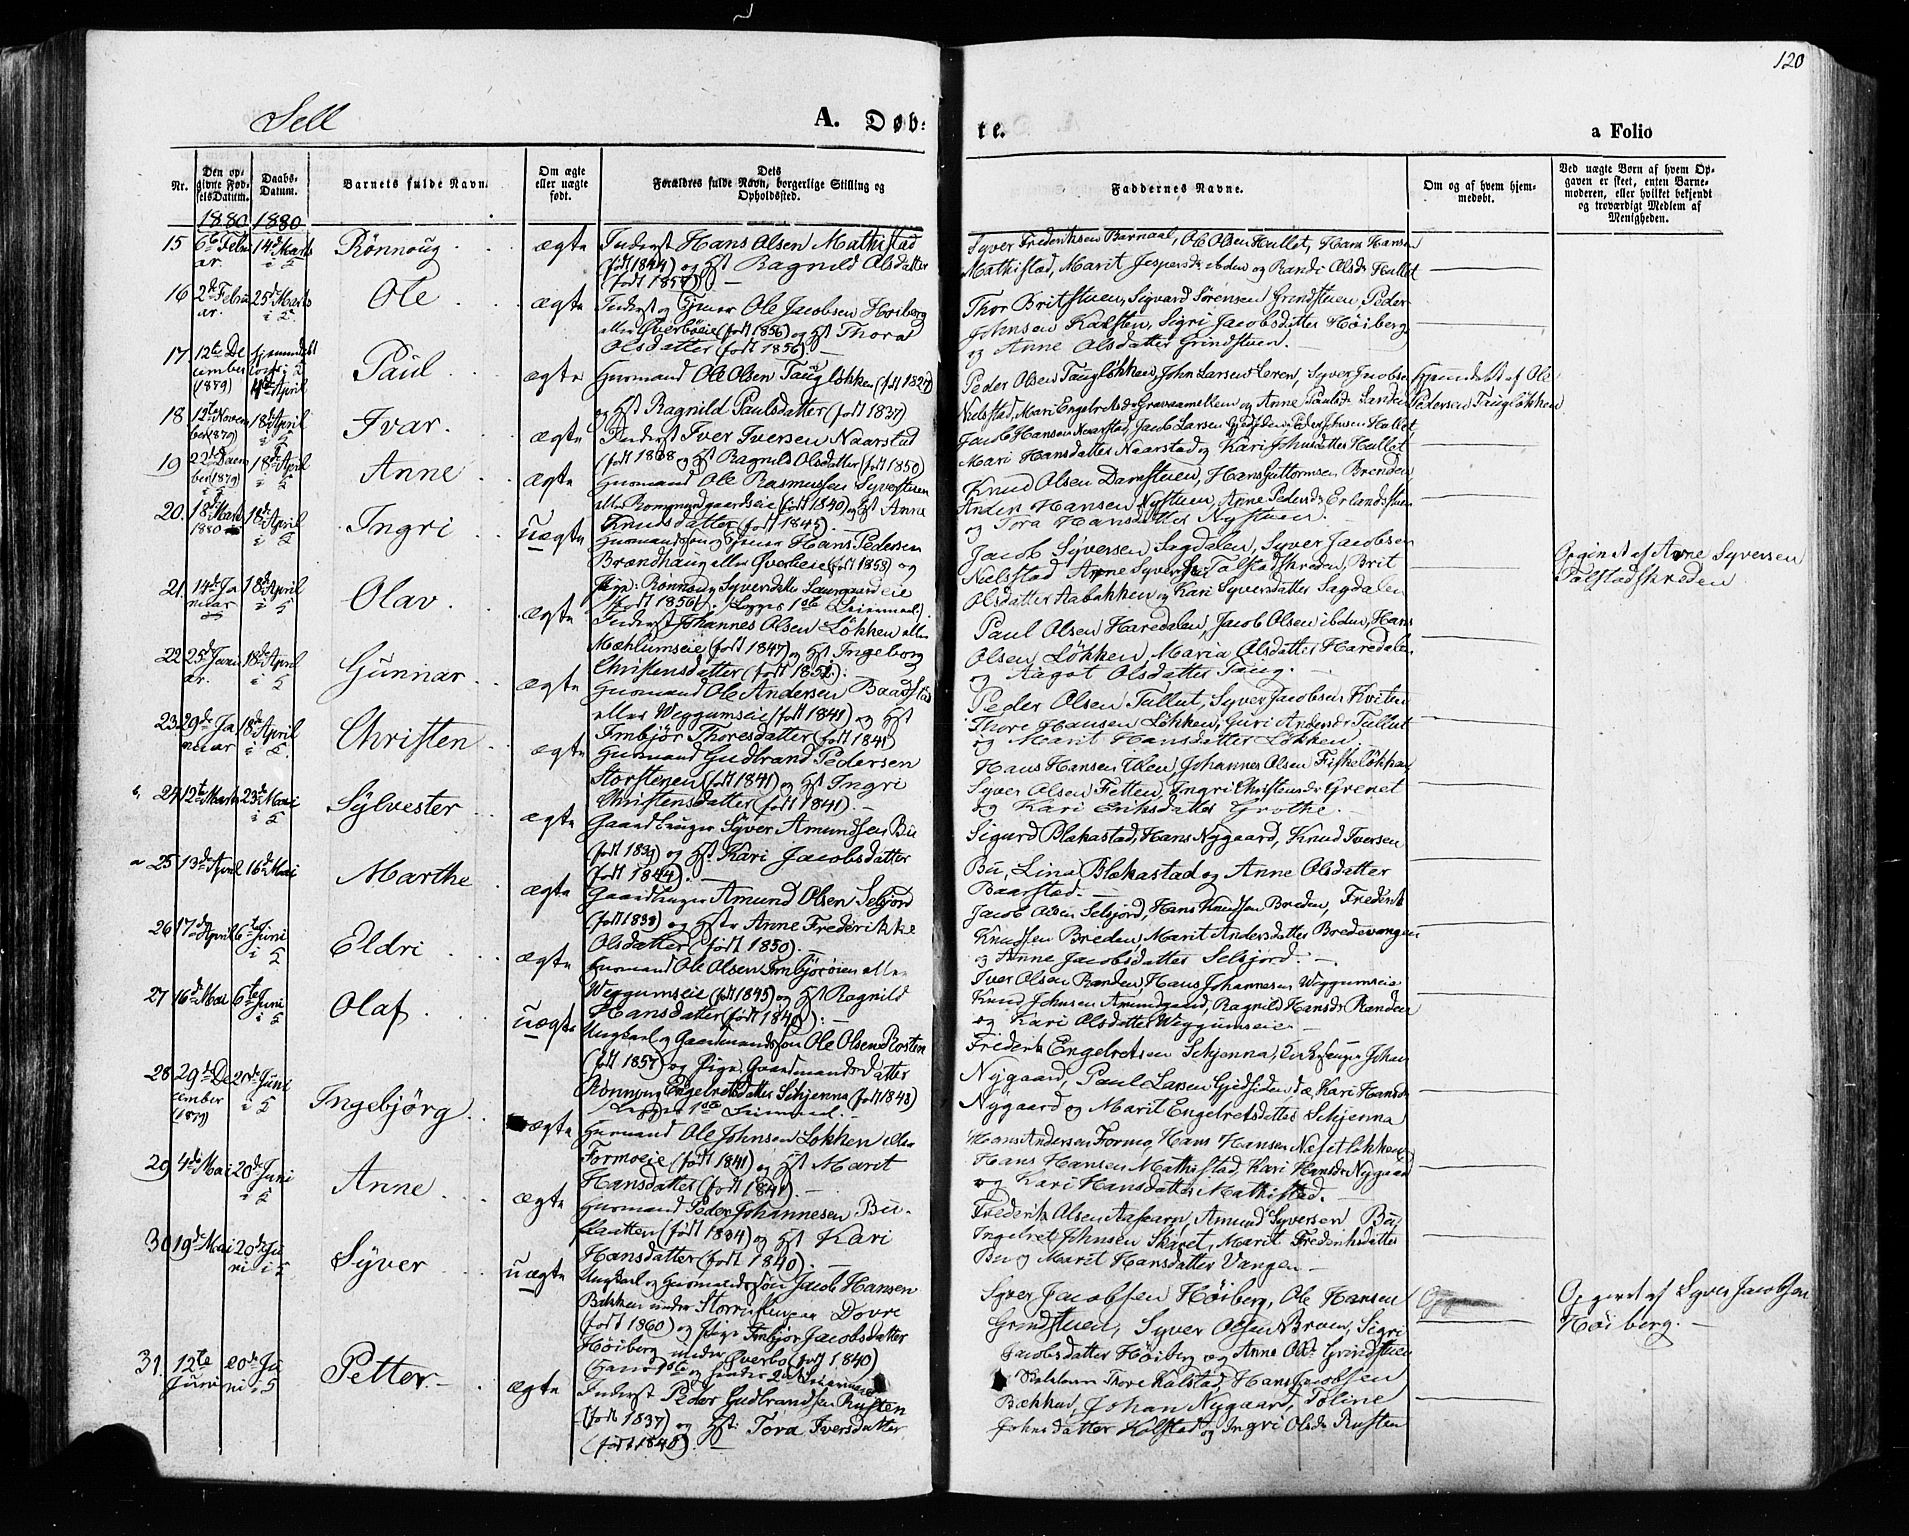 120
Sell
A. Døb-
te.
a Folio
Nr.
Den op-
givne Fød-
selsDatum.
Daabs-
Datum.
Barnets fulde Navn.
Om ægte
eller uægte
født.
Dets
Forældres fulde Navn, borgerlige Stilling og
Opholdssted.
Faddernes Navne.
Om og af hvem hjem-
medøbt.
Ved uægte Børn af hvem Op-
gaven er skeet, enten Barne-
moderen, eller hvilket bekjendt
og troværdigt Medlem af
Menigheden.
1880 1880
15 6te Febru
ar. 14de Marts
i S Rönnoug ægte Inderst Hans Olsen Mathistad
(født 1844) og Hst Ragnild Olsdatter
(født 1857). —
Syver Frederiksen Barnaal, Ole Olsen Hullet, Hans Hansen
Mathistad, Marit Jespersdr ibden og Randi Olsdr Hullet
16 2de Febru
ar. 25de Marts
i S. Ole ægte Inderst og Ole Jacobsen Höiberg
eller Øverböeie (født 1856) og Hst Thora
Olsdatter (født 1856). —
Thor Britstuen, Sigvard Sörensen Grindstuen, Peder
Johnsen Kolsten, Sigri Jacobsdatter Höiberg
og Anne Olsdatter Grindstuen. —
17 12te De
cember
(1879) 4de April Paul ægte Huusmand Ole Olsen Taugløkken (født 1827)
og Hst Ragnild Paulsdatter (født 1837)
Peder Olsen Taugløkken, John Larsen Leren, Syver Jacobsen
Nielsstad, Mari Engelretsdr og Anne Paulsdr Sanden
Hjemdøbt af Ole
Pedersen Taugløkken
18 12te Novem
ber (1879) 18de April
i S Ivar ægte Inderst Iver Iversen Naarstad
(født 1808 og Hst Ragnild Olsdatter (født 1850)
Jacob Hansen Naarstad, Jacob Larsen Gjedsiden, Hullet
Mari Hansdatter Naarstad og Kari Johnsdatter Hullet
19 22de Decem
ber (1879) 18de April
i S Anne ægte Huusmand Ole Rasmussen Syverstuen
eller Romyngaardseie (født 1840) og Hst Anne
Knudsdatter (født 1845). —
Knud Olsen Damstuen, Hans Guttormsen Brenden
Anders Hansen Nystuen, Anne Pedersdr Erlandsstuen
og Tora Hansdatter Nystuen. —
20. 18de Marts
1880 18de April
i S Ingri uægte Huusmandssøn Hans Pedersen
Brandhaug eller Øverböeie (født 1858) og
Pige Rönnoug Syversdatter Laurgaardeie
(født 1856). (Begges 1ste Leiermaal).
Jacob Syversen Sagdalen, Syver Jacobsen
Nielsstad Anne Syversdr Tolstadskreden, Brit
Olsdatter Aabakken og Kari Syversdatter Sagdalen
Opgivet af Anne Syversen
Tolstadskreden
21. 14de Ja
nuar 18de April
i S Olav ægte Inderst Johannes Olsen Løkken eller
Mæhlumseie (født 1847) og Hst Ingeborg
Christensdatter (født 1852). —
Paul Olsen Haredalen, Jacob Olsen ibden, Hans
Olsen Løkken, Maria Olsdatter Haredalen
og Aagot Olsdatter Taug. —
22 25de Janu
ar. 18de April
i S Gunnar ægte Huusmand Ole Andersen Baadstø
eller Wiggumseie (født 1841) og Hst
Imbjør Thoresdatter (født 1841)
Peder Olsen Tullut, Syver Jacobsen Kviten
Thore Hansen Løkken, Guri Andersdr Tullut
og Marit Hansdatter Løkken. —
23 29de Ja
nuar 18de April
i S. Christen ægte Huusmand Gudbrand Pedersen
Storstenen (født 1841) og Hst Ingri
Christensdatter (født 1841). —
Hans Hansen Ulen, Johannes Olsen Fiskeløkken
Syver Olsen Fetten, Ingri Christensdr Grenet
og Kari Eriksdatter Grothe. —
24 12te Marts 23de Mai
i S Sylvester ægte Gaardbruger Syver Amundsen Bu
(født 1839) og Hst Kari Jacobsdatter
(født 1844). —
Sigurd Blekastad, Hans Nygaard, Knud Iversen
Bu, Lina Blekastad og Anne Olsdatter
Baarstad. —
25 13de April 16de Mai Marthe ægte Gaardbruger Amund Olsen Selsjord
(født 1838) og Hst Anne Frederikke
Olsdatter (født 1850). —
Jacob Olsen Selsjord, Hans Knudsen Breden, Frederik
Knudsen Breden, Marit Andersdatter Bredevangen
og Anne Jacobsdatter Selsjord. —
26 17de April 6te Juni
i S Eldri ægte Huusmand Ole Olsen Imbjørøien eller
Wiggumseie (født 1845) og Hst Ragnild
Hansdatter (født 1840). —
Iver Olsen Randen, Hans Johannesen Wiggumseie
Knud Johnsen Amundgaard, Ragnild Hansdr Randen
og Kari Olsdatter Wiggumseie —
27 16de Mai 6te Juni
i S Olaf uægte Ungkarl og Gaardmandssøn Ole Olsen Rosten
(født 1857) og Pige, Gaardmandsdatter
Rönnoug Engelretsdatter Skjenna (født 1848)
(Begges 1ste Leiermaal. —
Frederik Engelretsen Skjenna, Johan
Nygaard, Paul Larsen Gjedsiden, Kari Hansdr
Nygaard og Marit Engelretsdatter Skjenna
28 29de De
cember
(1879) 20de Juni
i S Ingebjörg ægte Huusmand Ole Johnsen Løkken eller
Formoeie (født 1841) og Hst Marit
Hansdatter (født 1841). —
Hans Andersen Formo, Hans Hansen Nesetløkken
Hans Hansen Mathistad, Kari Hansdr Nygaard
og Kari Hansdatter Mathistad. —
29 4de Mai 20de Juni
i S Anne ægte Huusmand Peder Johannesen Bu-
slaatten (født 1834) og Hst Kari
Hansdatter (født 1840). —
Frederik Olsen Aasaaren, Amund Syversen Bu,
Ingelret Johnsen Skaret, Marit Frederiksdatter
Bu og Marit Hansdatter Vangen —
30 19de Mai 20de Ju
ni i S Syver uægte Ungkarl og Huusmandssøn Jacob Hansen
Bakken under Dovre
(født 1860) og Pige Imbjør Jacobsdatter
Höiberg under Øverbø (født 1840)
(Hans 1ste og hendes 2det Leiermaal
Syver Jacobsen Höiberg, Ole Hansen
Grindstuen, Syver Olsen Broen, Sigri
Jacobsdatter Höiberg og Anne Olsdr Grindstuen
Opgivet af Syver Jacobsen
Höiberg. —
31. 12te
Juni 20de Ju
ni i S Petter ægte Inderst Peder Gudbrandsen Rusten
(født 1837) og Hst Tora Iversdatter
(født 1840). —
Tore Kolstad, Hans Jacobsen
Bækken, Johan Nygaard, Toline
Johnsdatter Kolstad og Ingri Olsdr Rusten